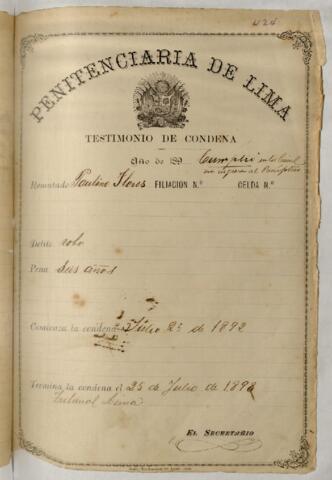 424
PENITENCIARIA DE LIMA
TESTIMONIO DE CONDENA
Año de 189 Cumplió en la Carcel
sin ingresar al Panóptico
Rematado Paulino Flores FILIACION N.º CELDA N.º
Delito robo
Pena Seis años
Comienza la condena Julio 25 de 1892
Termina la condena el 25 de Julio de 1898
Tribunal Lima
EL SECRETARIO